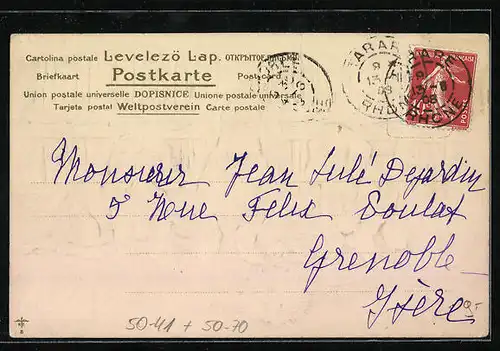 Cartolina postale Levelezö Lap. ОТКРЫТОЕ
Briefkaart Postkarte Postcard
Union postale universelle DOPISNICE Unione postale universale
Tarjeta postal Weltpostverein Carte postale
TARARE
RHONE
Monsieur Jean Julé Dejardin
5 Rue Felix Poulat
Grenoble
Isère
50-41 + 50-70
9.-